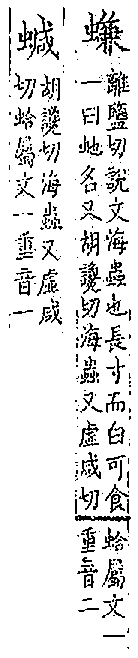 蠊
離鹽切說文海蟲也長寸而白可食
一曰虵名又胡讒切海蟲又虛咸切
蛤屬文一
重音二
䗁
胡讒切海蟲又虛咸
切蛤屬文一重音一